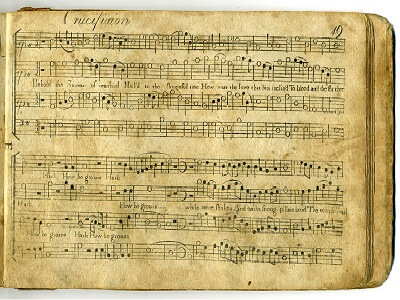 Crucifixion
19
Behold the Saviour of mankind Nail'd to the shameful tree How vast the love that him inclin'd To bleed and die for thee
Hark How he groans Hark
Hark How he groans while nature shakes And earth's strong pillars bend The
he groans Hark How he groans